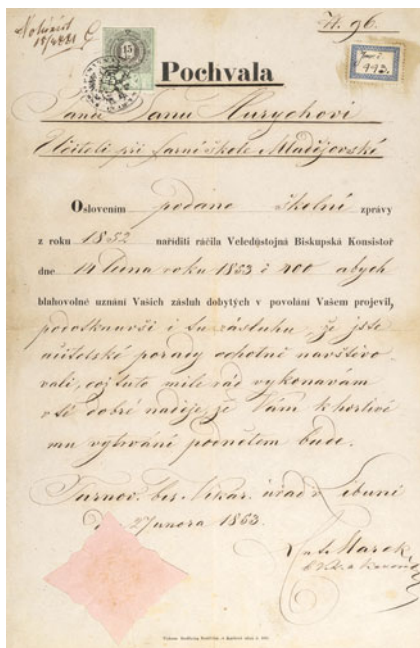 N. 96.
15
993.
Pochvala
Panu Janu Hurychovi
Učiteli při farní škole Mladějovské
Oslovením podané školní zprávy
z roku 1852 naříditi ráčila Veledůstojná Biskupská Konsistoř
dne 14 ledna roku 1853 č 400 abych
blahovolné uznání Vašich zásluh dobytých v povolání Vašem projevil,
podotknuvši i tu zásluhu, že jste
učitelské porady ochotně navštěvo
vali, což tuto mile rád vykonávám
v té dobré naději, že Vám k horlivé
mu vytrvání podnětem bude.
Turnov. bis. Vikár. úřad v Libuni
d. 2 února 1853.
Ant. Marek